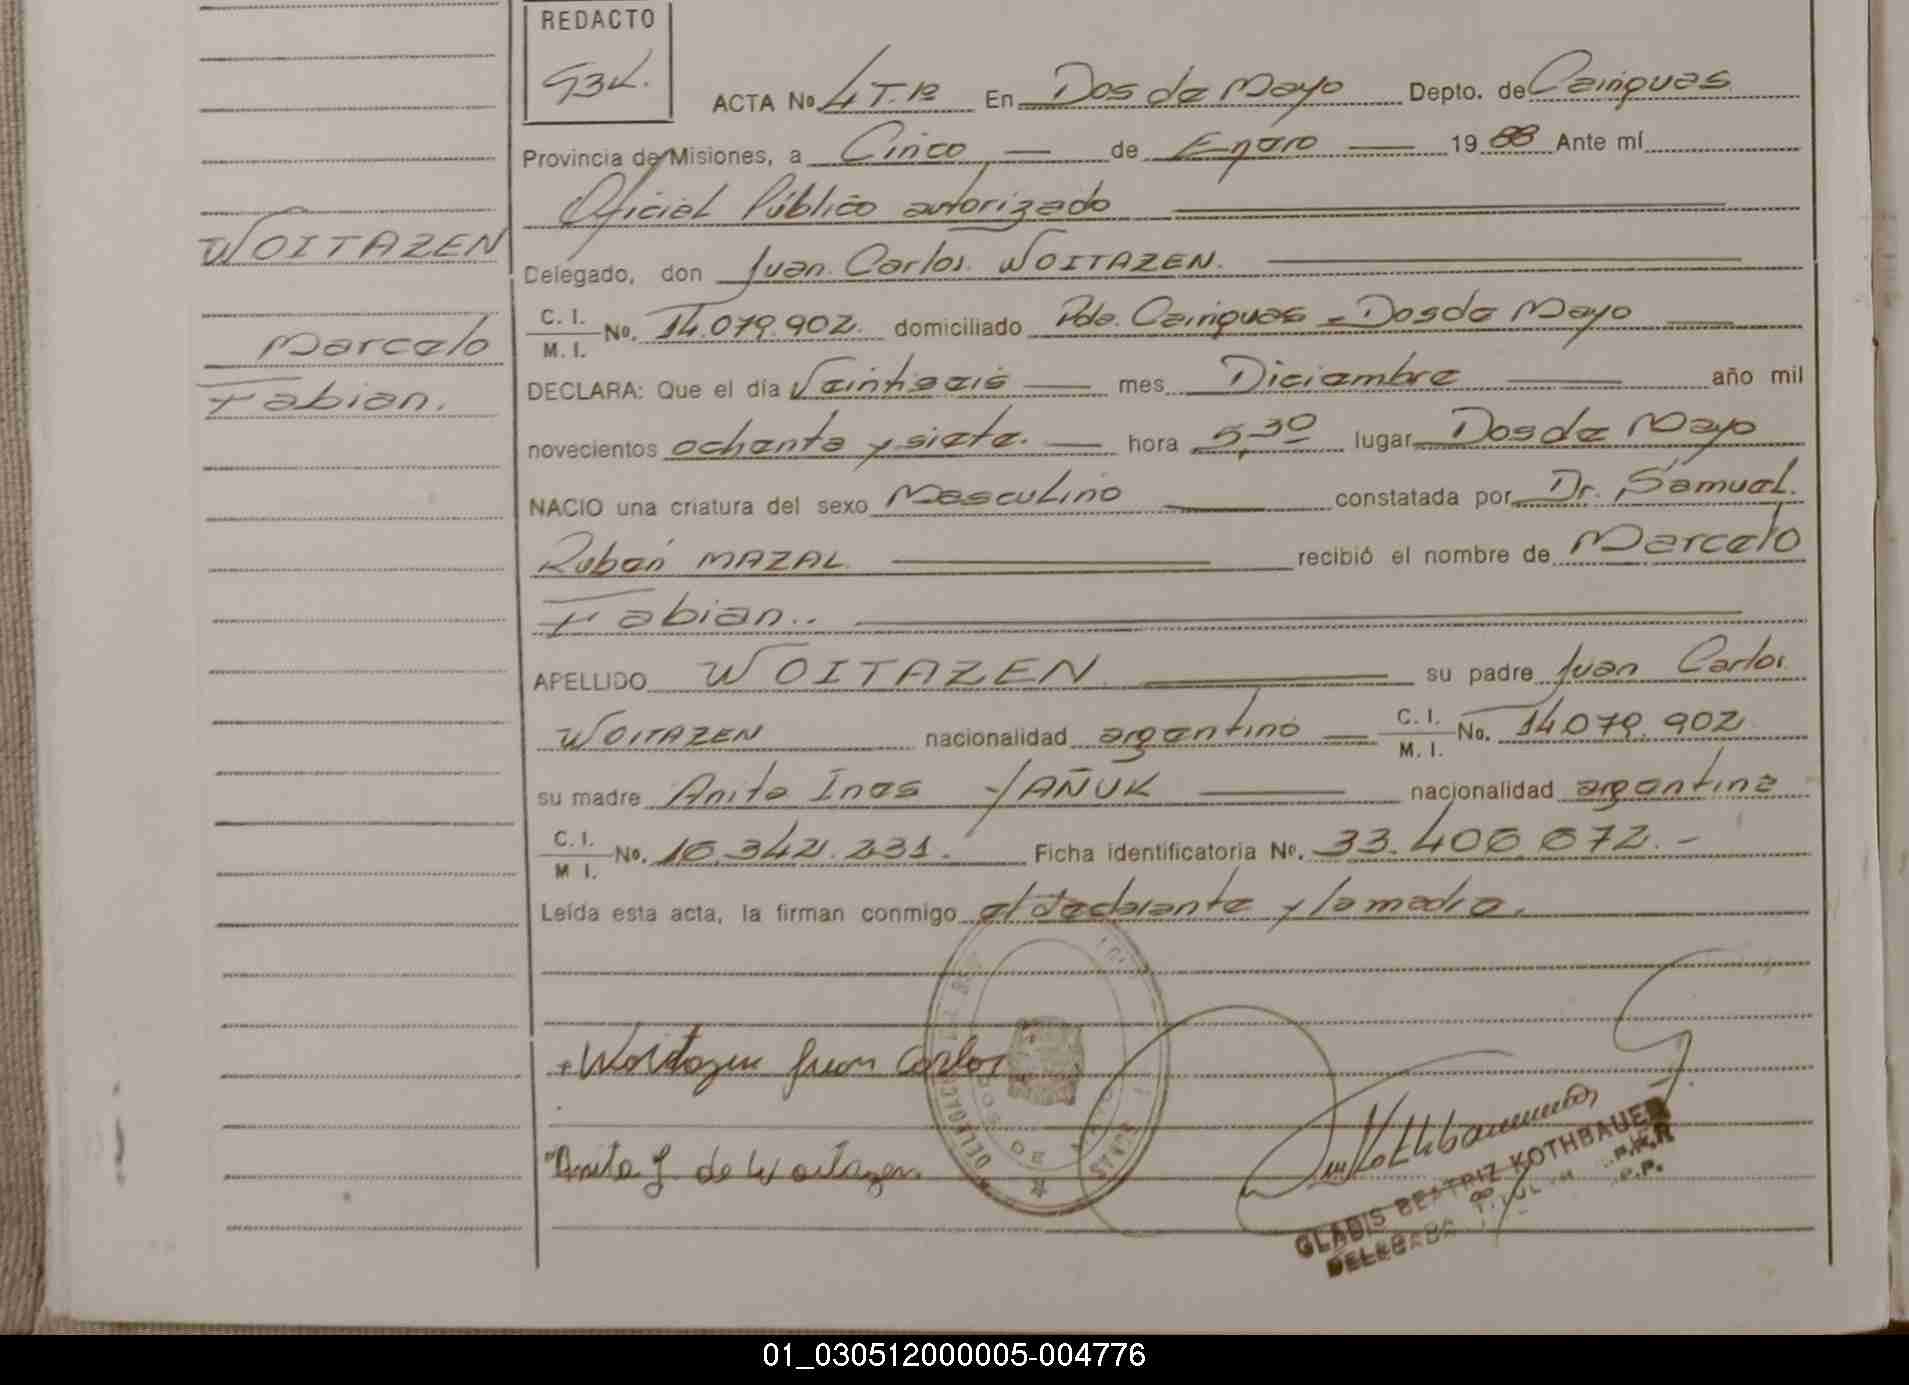 REDACTO
GBK.
ACTA Nº 4 Tº1º En Dos de Mayo Depto. de Cainguas
Provincia de Misiones, a Cinco — de Enero — 1988 Ante mí
Oficial Público autorizado
WOITAZEN
Delegado, don Juan Carlos WOITAZEN.
C. I.
M. I. No. 14.079.902. domiciliado Pdo. Cainguas - Dos de Mayo
Marcelo
Fabian.
DECLARA: Que el día Veintiseis — mes Diciembre — año mil
novecientos ochenta y siete. — hora 5,30 lugar Dos de Mayo
NACIO una criatura del sexo Masculino — constatada por Dr. Samuel.
Rubén MAZAL — recibió el nombre de Marcelo
Fabian..
APELLIDO WOITAZEN — su padre Juan Carlos
WOITAZEN nacionalidad argentino — C. I.
M. I. No. 14.079.902
su madre Anita Ines YAÑUK — nacionalidad argentina
C. I.
M I. No. 16.342.231. Ficha identificatoria Nº. 33.406.672.-
Leída esta acta, la firman conmigo el declarante y la madre.
Woitazen Juan Carlos
Anita Y. de Woitazen.
Kothbauer
GLADIS BEATRIZ KOTHBAUER
DELEGADA TITULAR
01_030512000005-004776